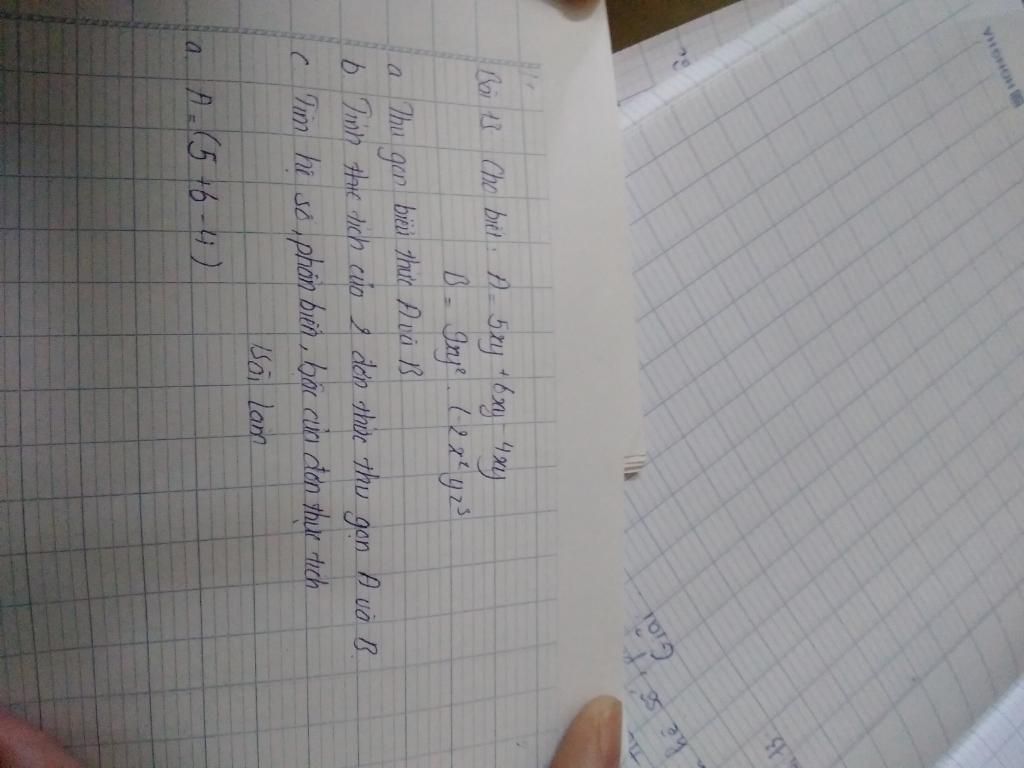 Bài 13 Cho biết: A = 5xy + 6xy - 4xy
B = 9xy² . (-2x²yz³
a Thu gọn biểu thức A và B
b Tính thức tích của 2 đơn thức thu gọn A và B.
c Tìm hệ số, phần biến, bậc của đơn thức tích
Bài Làm
a A = (5 + 6 - 4)
HONG HA
Giải